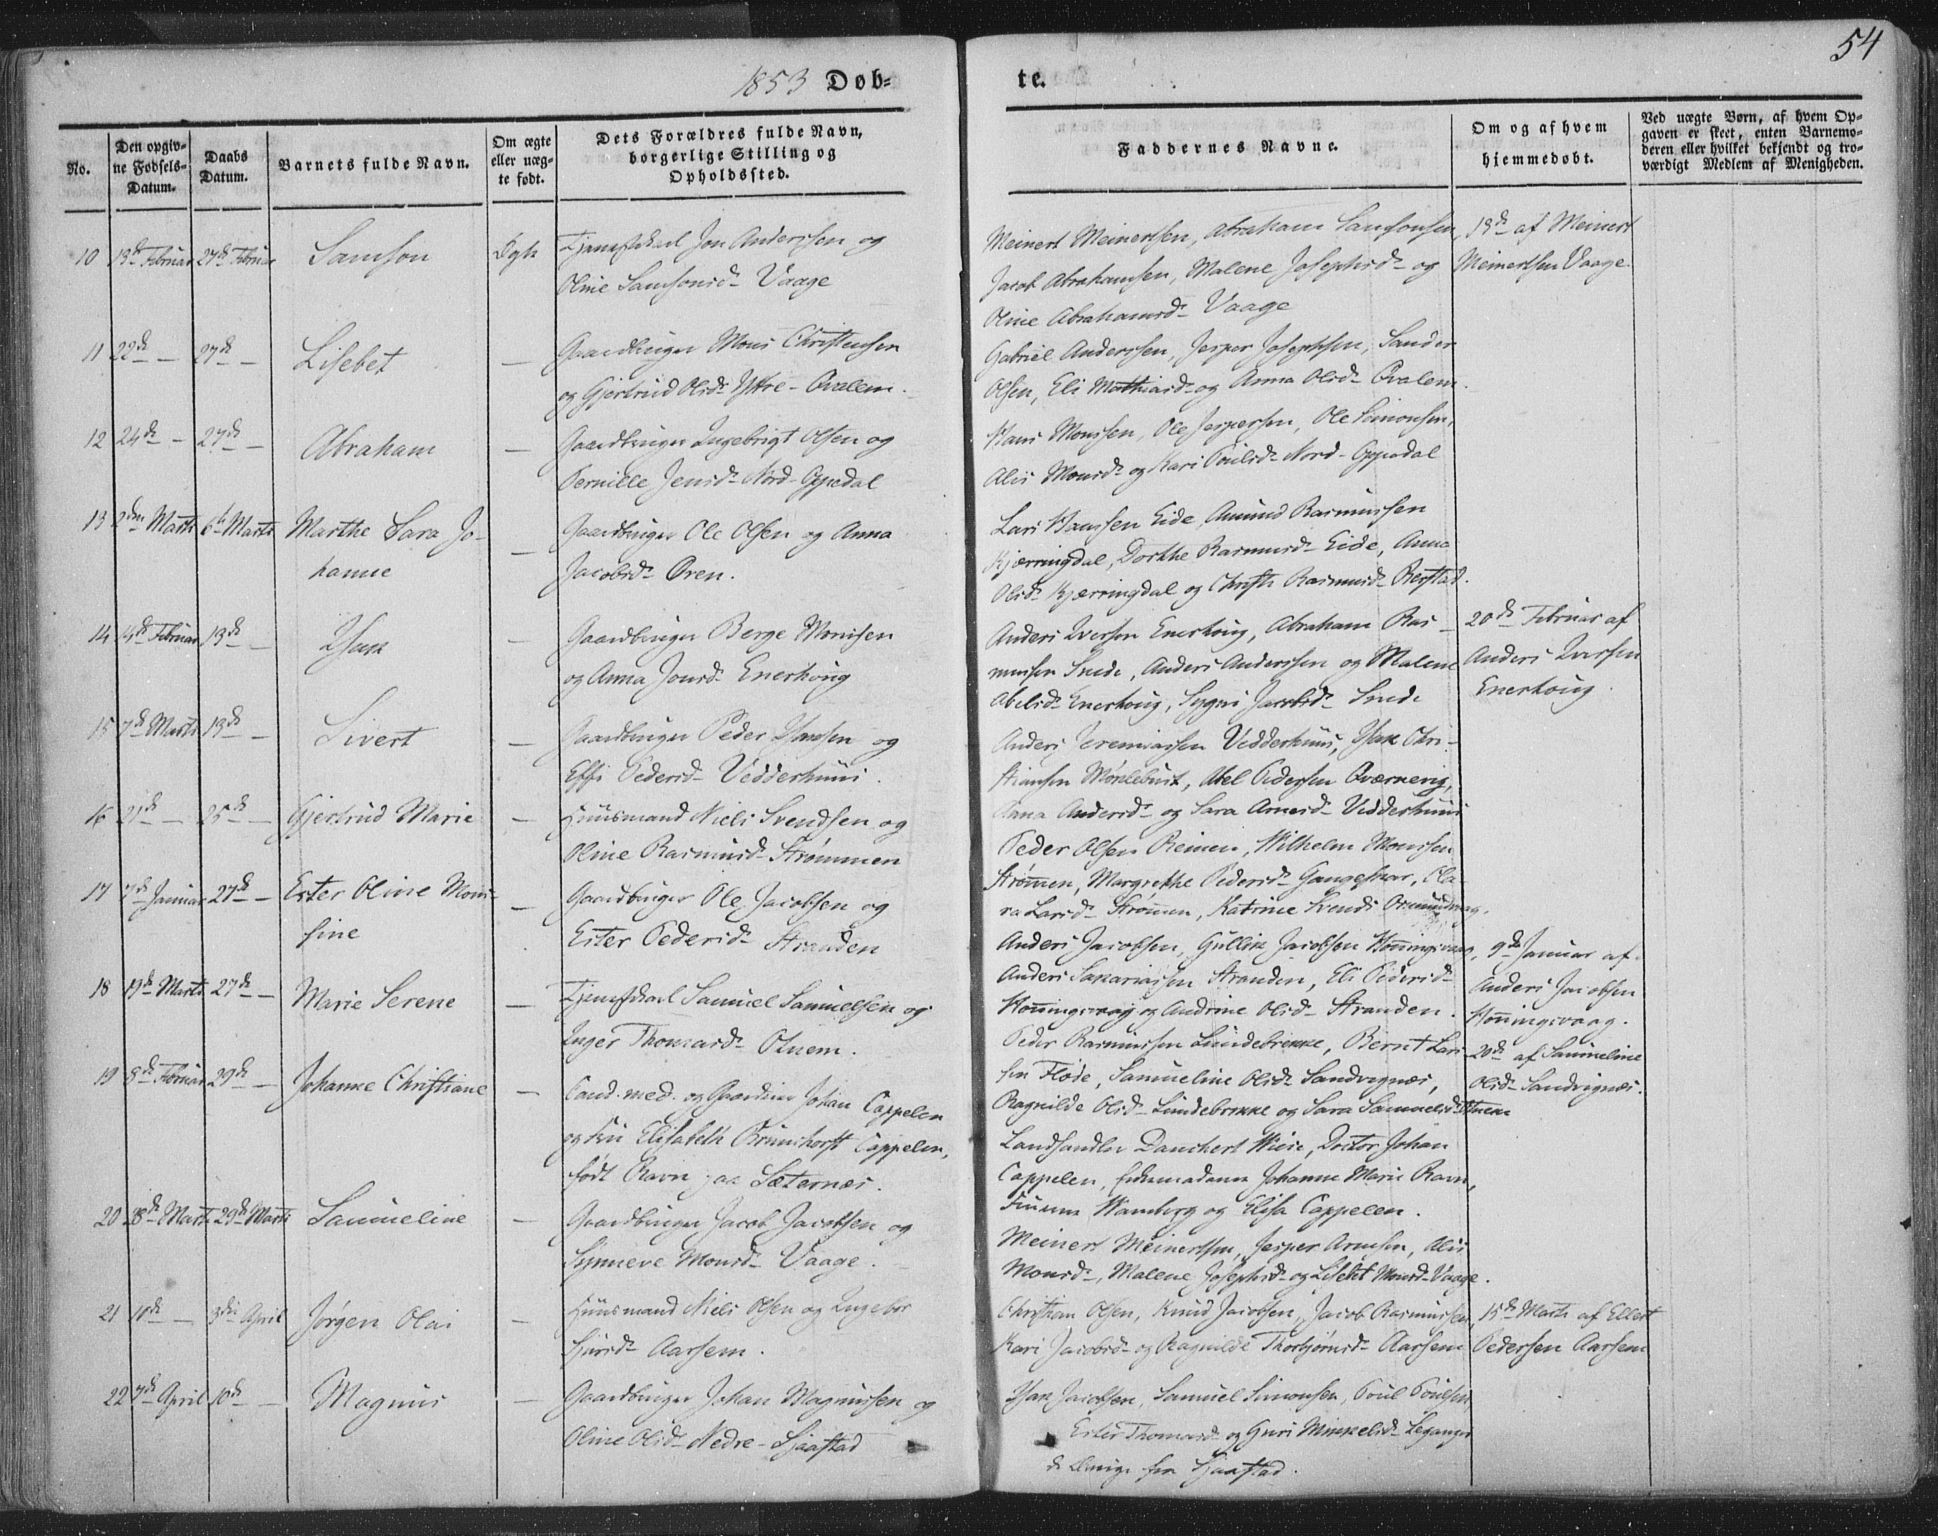 54
1853 Døb-
te.
No.
Den opgiv-
ne Fødsels-
Datum.
Daabs
Datum.
Barnets fulde Navn.
Om ægte
eller uæg-
te født.
Dets Forældres fulde Navn,
borgerlige Stilling og
Opholdssted.
Faddernes Navne.
Om og af hvem
hjemmedøbt.
Ved uægte Børn, af hvem Op-
gaven er skeet, enten Barnemo-
deren eller hvilket bekjendt og tro-
værdigt Medlem af Menigheden.
10 13de Februar 27de Februar Samson Ægte Tjenestekarl Jon Anderssen og
Oline Samsonsd. Vaage
Meinert Meinertsen, Abraham Samsonsen,
Jacob Abrahamsen, Malene Josephsd. og
Oline Abrahamsd. Vaage
19de af Meinert
Meinertsen Vaage.
11 22de — 27de — Lisebet — Gaardbruger Mons Christensen
og Gjertrud Olsd. Ytre-Qvalem.
Gabriel Anderssen, Jesper Josephsen, Sander
Olsen, Eli Mathiasd. og Anna Olsd. Qvalem.
12 24de — 27de — Abraham — Gaardbruger Ingebrigt Olsen og
Pernille Jensd. Nord-Gypedal
Hans Monssen, Ole Jespersen, Ole Simonsen,
Alis Monsd. og Kari Poulsd. Nord-Gypedal
13 2den Marts 6te Marts Marthe Sara Jo-
hanne
— Gaardbruger Ole Olsen og Anna
Jacobsd. Øren.
Lars Hanssen Eide, Amund Rasmussen
Kjærringdal, Dorthe Rasmusd. Eide, Anne
Olsd. Kjærringdal og Christi Rasmusd.
14 14de Februar 13de — Isak — Gaardbruger Berge Monssen
og Anna Jonsd. Enerhoug
Anders Iversen Enerhoug, Abraham Ras-
mussen Snede, Anders Anderssen og Malene
Abelsd. Enerhoug, Sygni Jacobsd. Snede
20de Februar af
Anders Iversen
Enerhoug.
15 7de Marts 13de — Sivert — Gaardbruger Peder Hansen og
Effi Pedersd. Vedderhuus.
Anders Jeremiassen Vedderhuus, Isak Chri-
stiansen Mørlebust, Abel Pedersen Qværnevig,
Anna Andersd. og Sara Arnesd. Vedderhuus
16 21de — 25de — Gjertrud Marie — Huusmand Niels Svendsen og
Oline Rasmusd. Strømmen
Peder Olsen Reinen, Wilhelm Monssen
Strømen, Margrethe Pedersd. Gangeskar, Cla-
ra Larsd. Strømen, Katrine Svends
17 7de Januar 27de — Ester Oline Mon-
sine
— Gaardbruger Ole Jacobsen og
Ester Pedersd. Stranden
Anders Jacobsen, Gullik Jacobsen Honingsvaag,
Anders Sakariassen Stranden, Eli Pedersd.
Honingsvaag og Andrine Olsd. Stranden.
9de Januar af
Anders Jacobsen
Honingsvaag.
18 19de Marts 27de — Marie Serene — Tjenestekarl Samuel Samuelsen og
Inger Thomasd. Otnem.
Peder Rasmussen Lundebrekke, Bernt Lar-
sen Fløde, Samueline Olsd. Sandvignæs,
Ragnilde Olsd. Lundebrekke og Sara Samuelsd. Otnem
20de af Samueline
Olsd. Sandvignæs.
19 8de Februar 29de — Johanne Christiane — Cand. med. og Gaardeier Johan Cappelen
og Fru Elisabeth Brunshorst Cappelen,
født Ravn, paa Sæternæs.
Landhandler Danchert Wiese, Doctor Johan
Cappelen, Enkemadame Johanne Marie Ravn,
Wamberg og Elisa Cappelen.
20 28de Marts 29de Marts Samueline — Gaardbruger Jacob Jacobsen og
Synneve Monsd. Vaage.
Meinert Meinertsen, Jesper Arnesen, Alis
Monsd., Malene Josephsd. og Lisebet Monsd. Vaage.
21 11de — 3die April Jørgen Olai — Huusmand Niels Olsen og Ingebor
Sjursd. Aarsem.
Christian Olsen, Knud Jacobsen, Jacob Rasmussen,
Kari Jacobsd. og Ragnilde Thorbjørnsd. Aarsem
15de Marts af Ellert
Pedersen Aarsem
22 7de April 10de — Magnus — Gaardbruger Johan Magnussen og
Oline Olsd. Nedre-Sjaastad
Isak Jacobsen, Samuel Simonsen, Poul Poulsen
Ester Thomasd. og Guri Mikkelsd. Leganger
de øvrige fra Sjaastad.